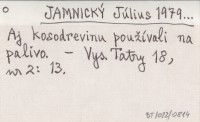 JAMNICKÝ Július 1979...
Aj kosodrevinu používali na
palivo. – Vys. Tatry 18,
nr 2: 13.